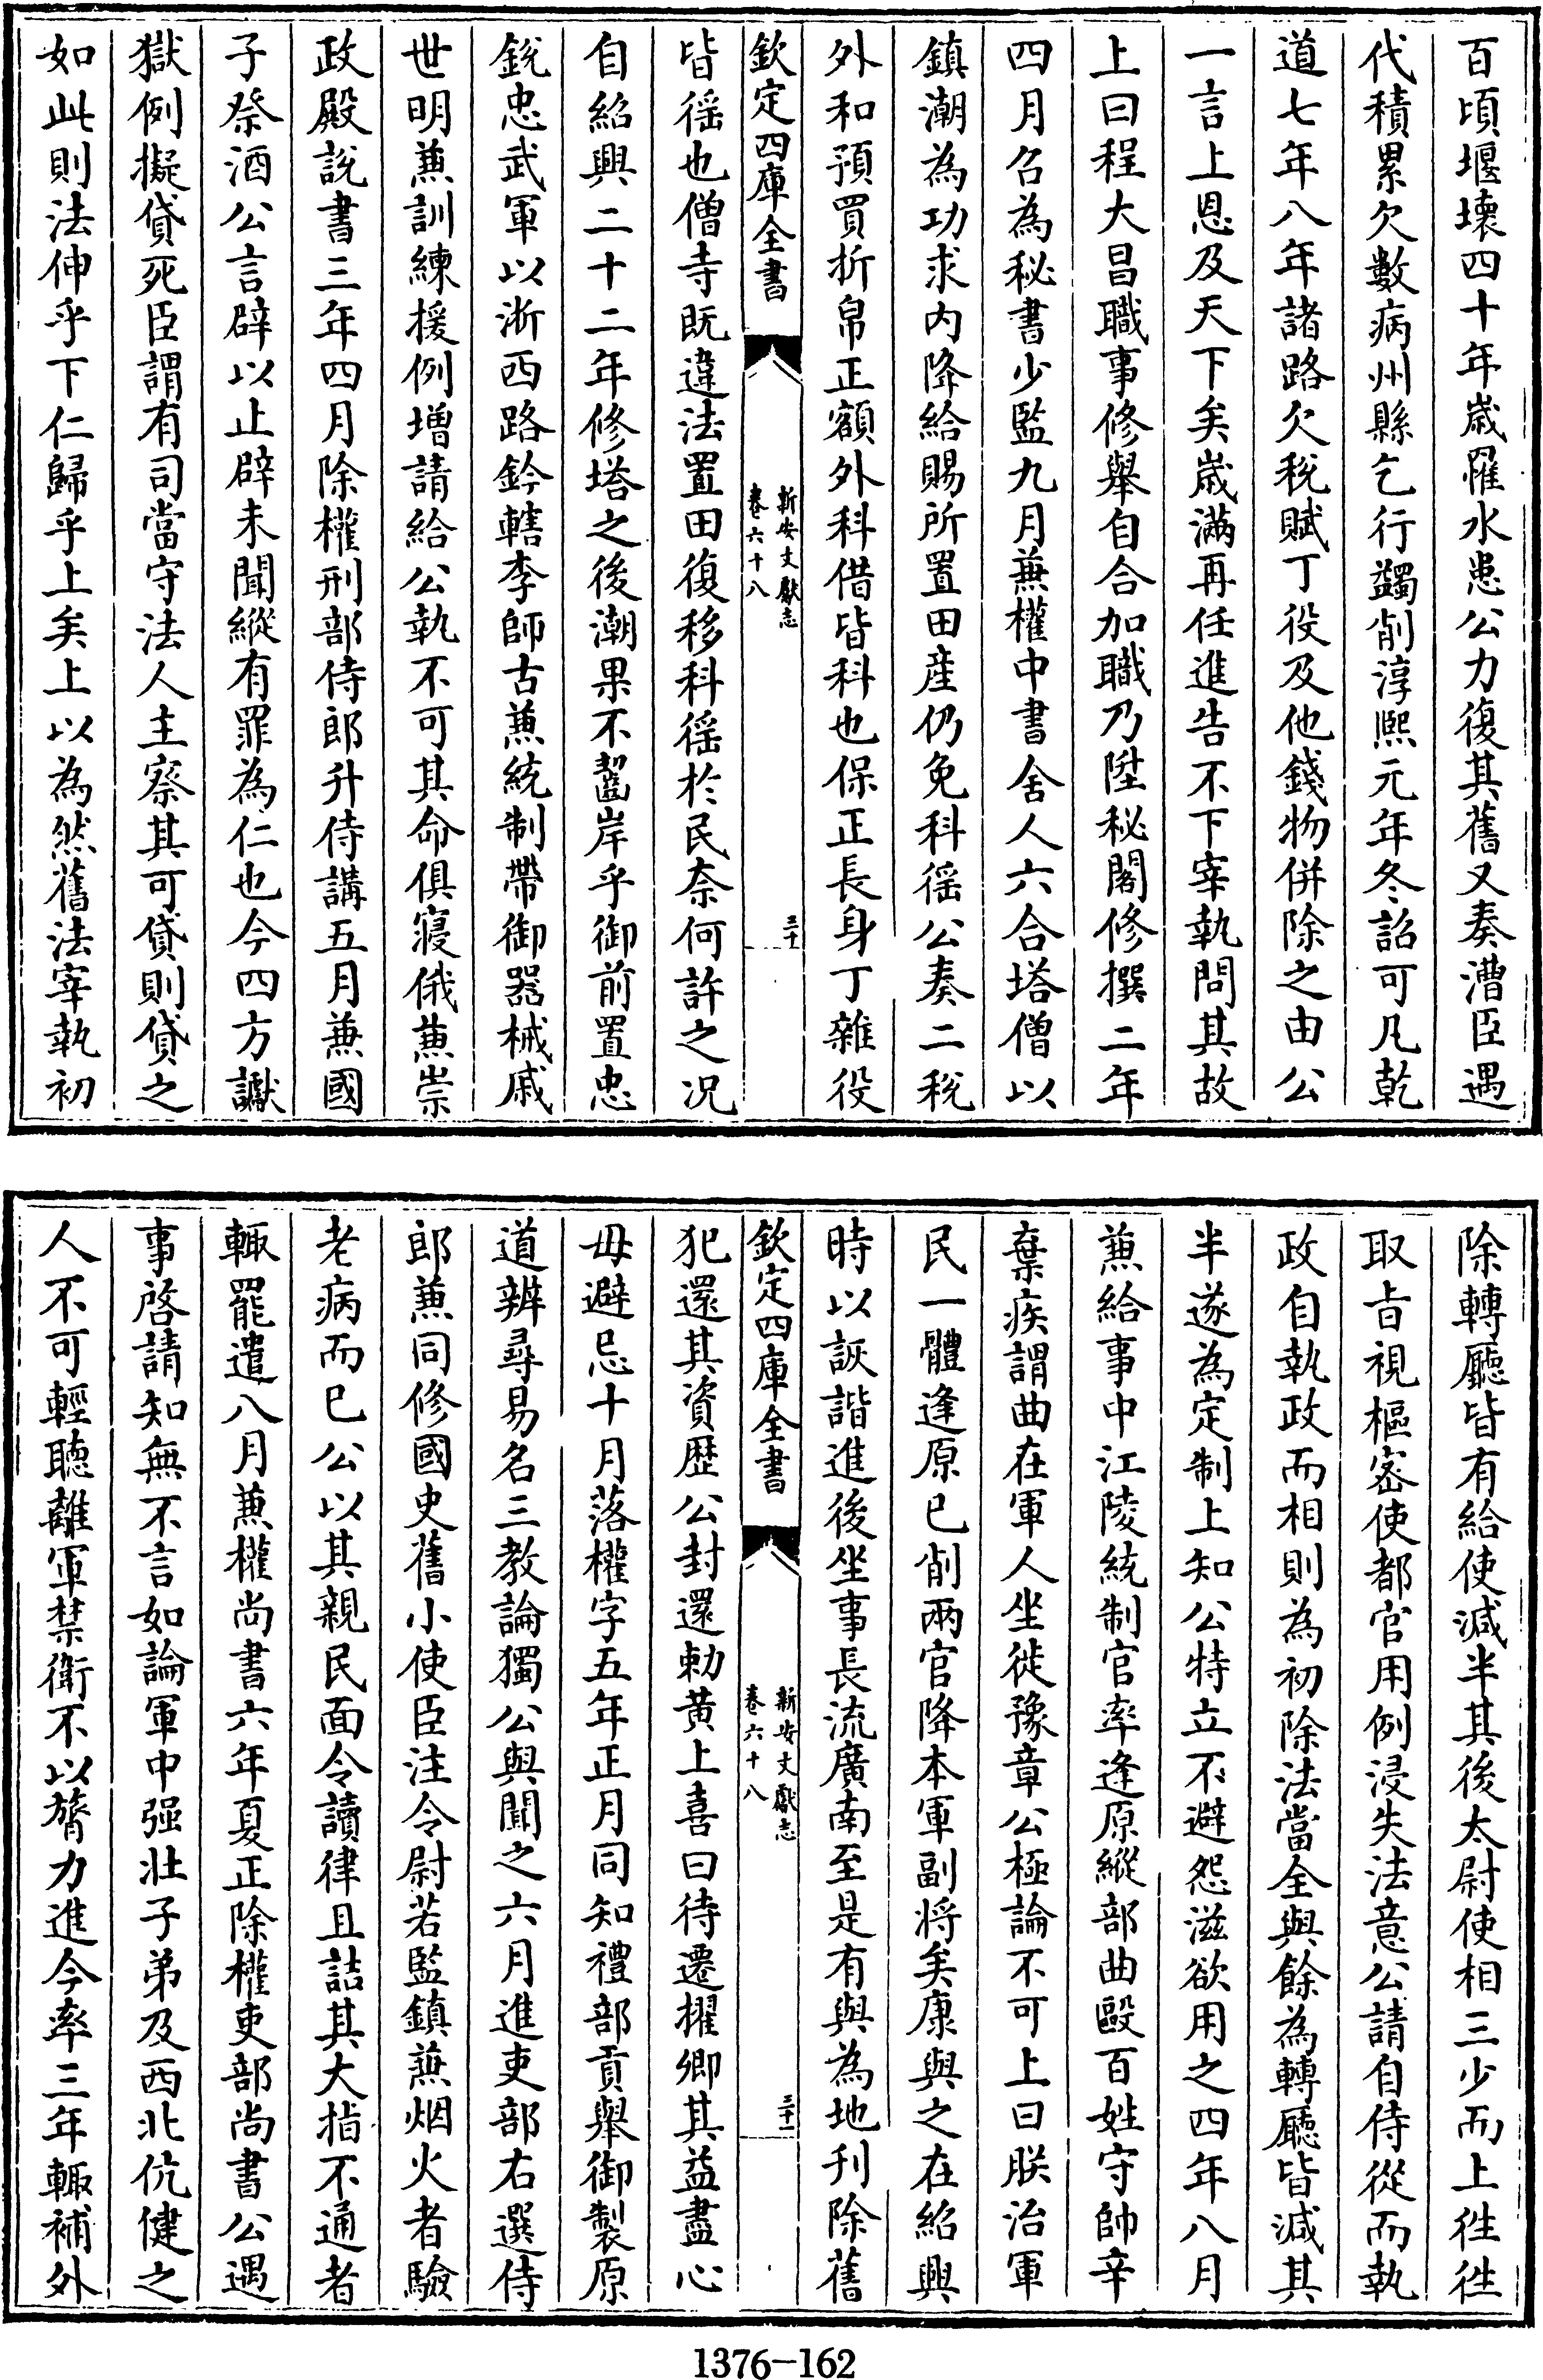 百頃堰壊四十年嵗罹水患公力復其舊又奏漕臣遇
代積累欠數病州縣乞行蠲削淳熙元年冬詔可凡乾
道七年八年諸路欠税賦丁役及他錢物併除之由公
一言上恩及天下矣嵗滿再任進告不下宰執問其故
上曰程大昌職事修舉自合加職乃陞秘閣修撰二年
四月召為秘書少監九月兼權中書舍人六合塔僧以
鎮潮為功求内降給賜所置田産仍免科徭公奏二税
外和預買折帛正額外科借皆科也保正長身丁雜役
欽定四庫全書
新安文獻志
卷六十八
三十
皆徭也僧寺既違法置田復移科徭於民奈何許之况
自紹興二十二年修塔之後潮果不齧岸乎御前置忠
鋭忠武軍以浙西路鈐轄李師古兼統制帶御器械戚
世明兼訓練援例増請給公執不可其命俱寢俄兼崇
政殿説書三年四月除權刑部侍郎升侍講五月兼國
子祭酒公言辟以止辟未聞縱有罪為仁也今四方讞
獄例擬貸死臣謂有司當守法人主察其可貸則貸之
如此則法伸乎下仁歸乎上矣上以為然舊法宰執初
除轉廳皆有給使減半其後太尉使相三少而上徃徃
取㫖視樞宻使都官用例浸失法意公請自侍從而執
政自執政而相則為初除法當全與餘為轉廳皆減其
半遂為定制上知公特立不避怨滋欲用之四年八月
兼給事中江陵統制官率逢原縱部曲毆百姓守帥辛
棄疾謂曲在軍人坐徙豫章公極論不可上曰朕治軍
民一體逢原已削兩官降本軍副將矣康與之在紹興
時以詼諧進後坐事長流廣南至是有與為地刋除舊
欽定四庫全書
新安文獻志
卷六十八
三十一
犯還其資歴公封還勅黄上喜曰待遷擢卿其益盡心
毋避忌十月落權字五年正月同知禮部貢舉御製原
道辨尋易名三教論獨公與聞之六月進吏部右選侍
郎兼同修國史舊小使臣注令尉若監鎮兼烟火者驗
老病而已公以其親民面令讀律且詰其大指不通者
輙罷遣八月兼權尚書六年夏正除權吏部尚書公遇
事啓請知無不言如論軍中强壯子弟及西北伉健之
人不可輕聽離軍禁衛不以膂力進今率三年輙補外
1376-162